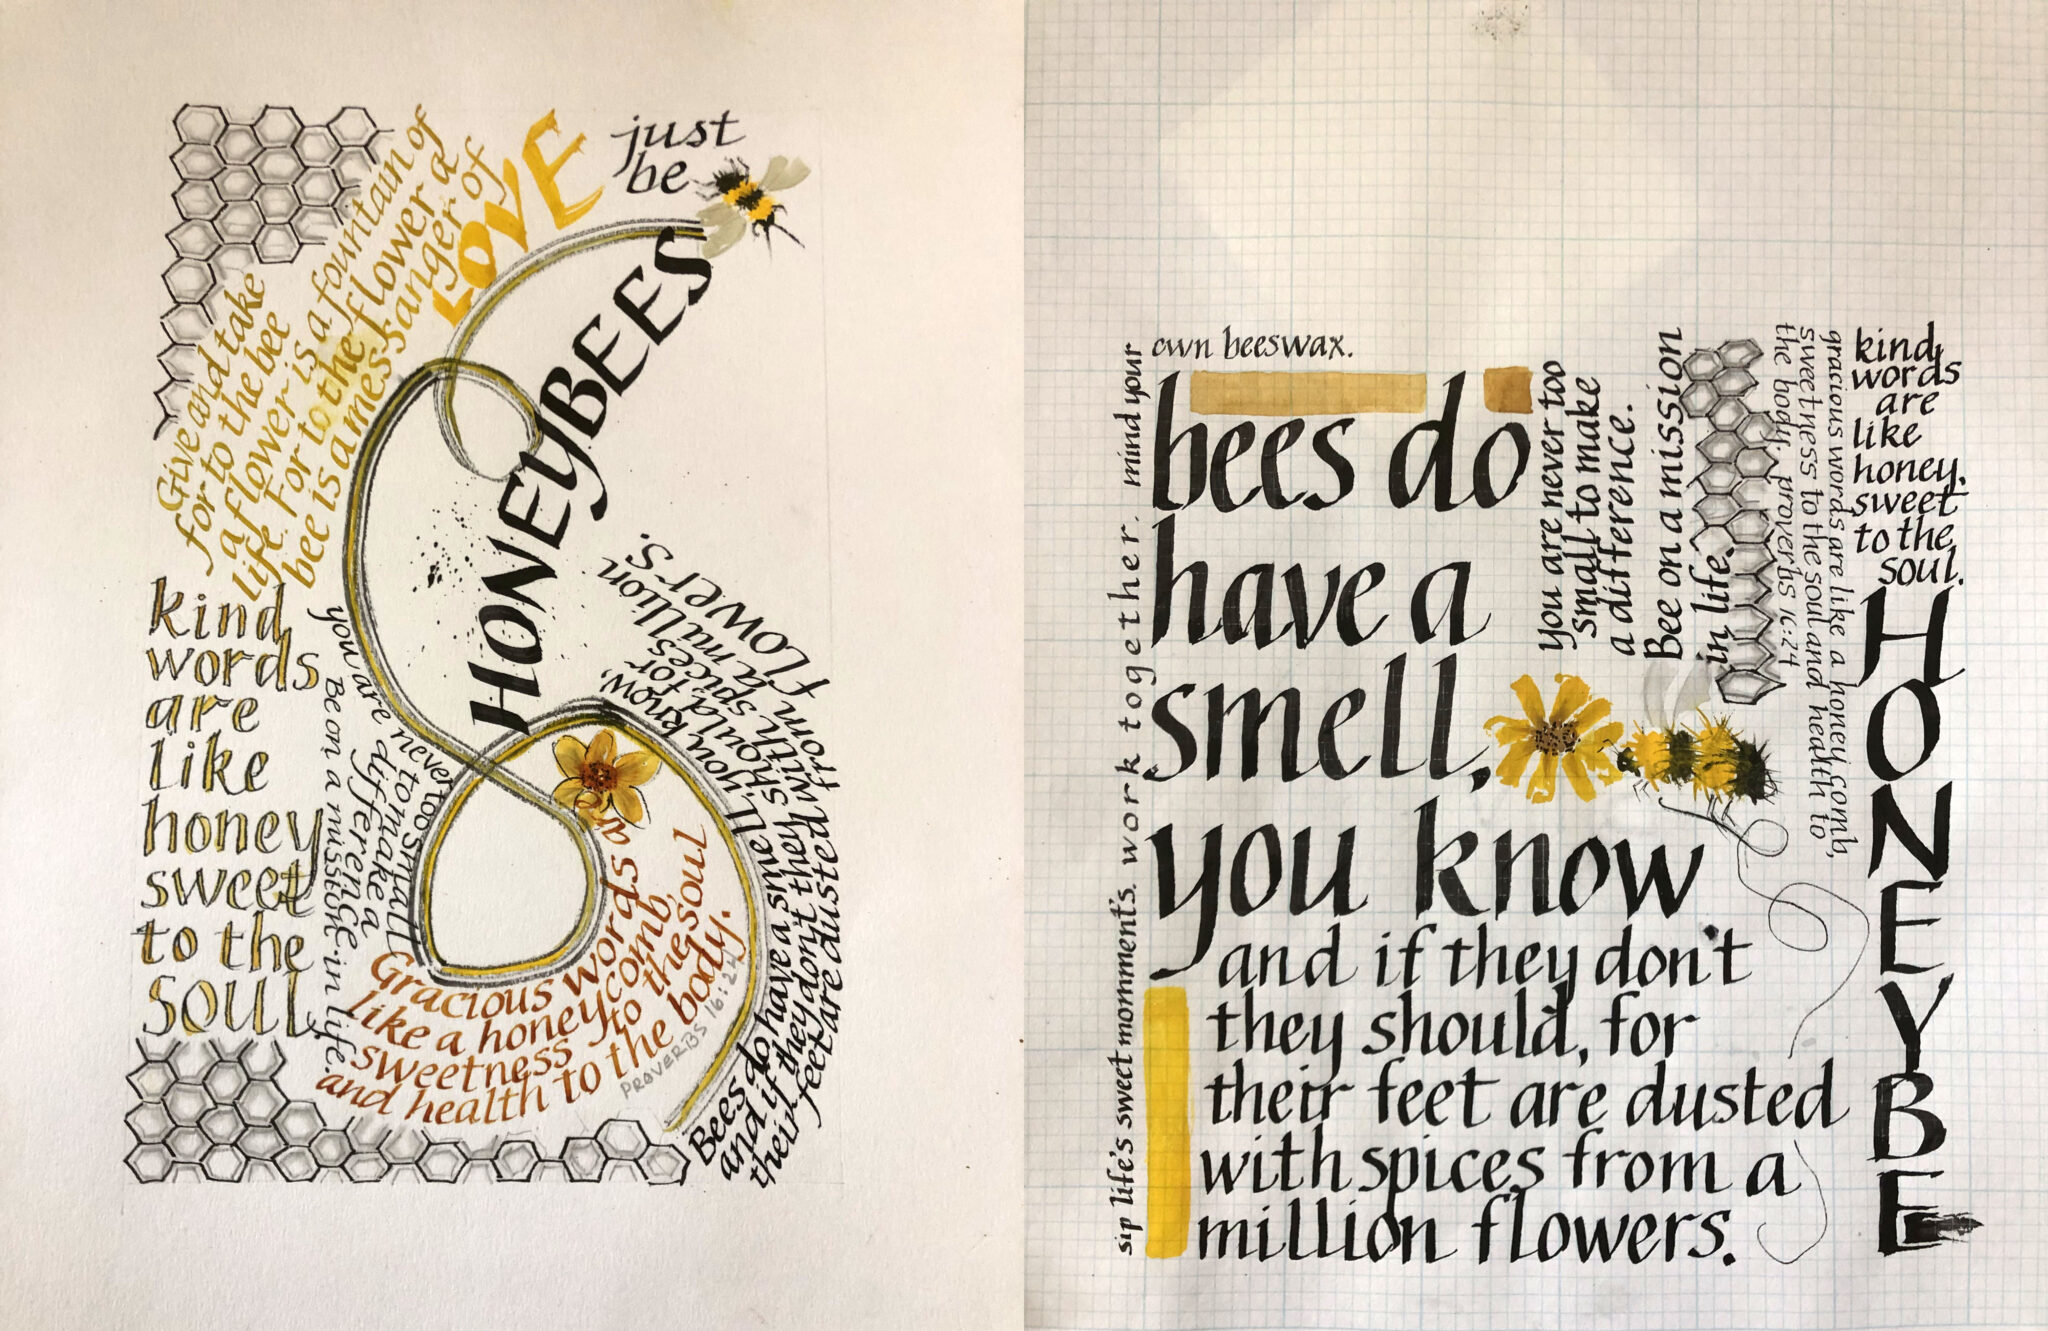 Give and take
for to the bee
a flower is a fountain of
life. For to the flower a
bee is a messanger of
LOVE
just
be
HONEYBEES
kind
words
are
like
honey
sweet
to the
SOUL
you are never too small
to make a
difference
Be on a mission in life.
Gracious words are
like a honeycomb,
sweetness to the soul
and health to the body.
PROVERBS 16:24
Bees do have a smell, you know,
and if they don't they should, for
their feet are dusted with spices
from a million
flowers.
sip life's sweet momment's. work together. mind your
own beeswax.
bees do
have a
smell,
you know
and if they don't
they should, for
their feet are dusted
with spices from a
million flowers.
you are never too
small to make
a difference.
Bee on a mission
in life.
gracious words are like a honey comb,
sweetness to the soul and health to
the body. proverbs 16:24
kind
words
are
like
honey.
sweet
to the
soul.
HONEYBE